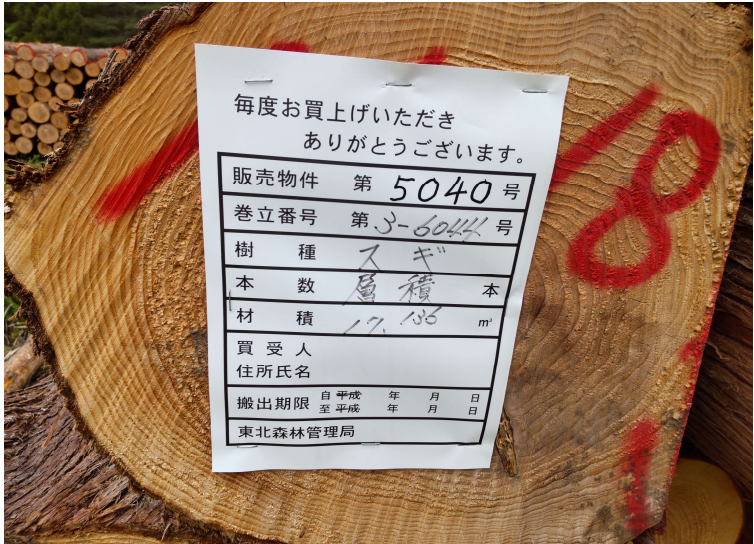 毎度お買上げいただき
ありがとうございます。
販売物件 第 5040 号
巻立番号 第 3-6044 号
樹種 スギ
本数 層積 本
材積 17.136 m³
買受人
住所氏名
搬出期限 自 平成 年 月 日
至 平成 年 月 日
東北森林管理局